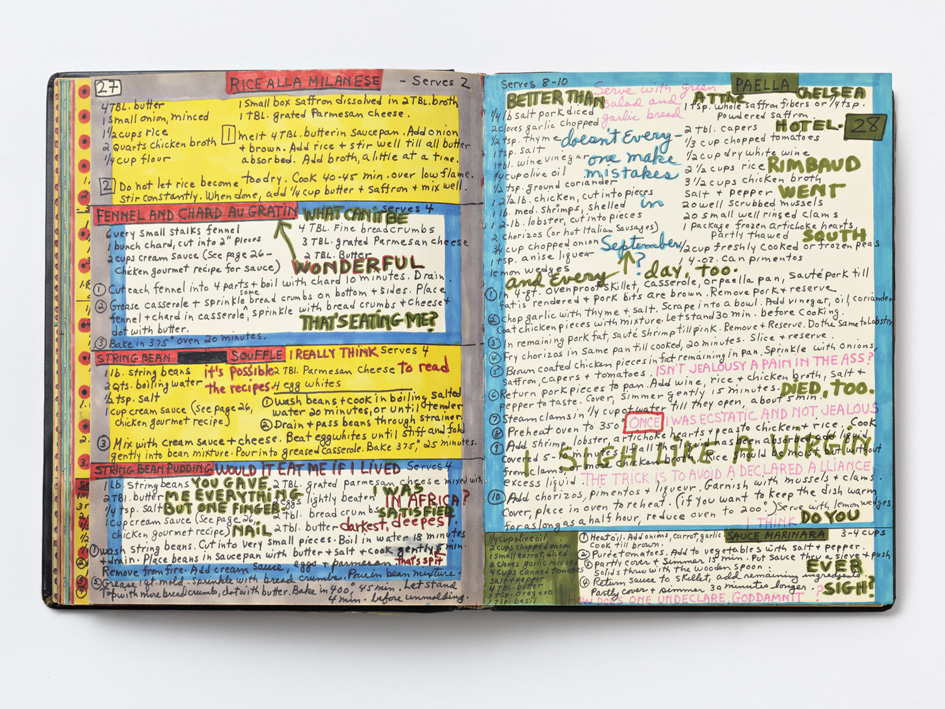 27
RICE ALLA MILANESE - Serves 2
4 TBL. butter
1 small onion, minced
1 1/2 cups rice
2 Quarts Chicken broth
1/4 cup flour
1 small box saffron dissolved in 2 TBL. broth
1 TBL. grated Parmesan cheese.
1 Melt 4 TBL. butter in Saucepan. Add onion
+ brown. Add rice + stir well till all butter
absorbed. Add broth, a little at a time.
2 Do not let rice become too dry. Cook 40-45 min. over low flame.
stir constantly. When done, add 1/4 cup butter + Saffron + mix well.
FENNEL AND CHARD AU GRATIN Serves 4
WHAT CAN IT BE
6 very small stalks fennel
1 bunch chard, cut into 2" pieces
2 cups cream sauce (see page 26-
Chicken gourmet recipe for sauce)
4 TBL. Fine breadcrumbs
3 TBL. grated Parmesan cheese
2 TBL. Butter
WONDERFUL
① Cut each fennel into 4 parts + boil with chard 10 minutes. Drain
② Grease casserole + sprinkle bread crumbs on bottom + sides. Place
fennel + chard in casserole, sprinkle with bread crumbs + cheese +
dot with butter.
THATS EATING ME?
③ Bake in 375° oven 20 minutes.
STRING BEAN SOUFFLE I REALLY THINK Serves 4
1 lb. string beans
2 Qts. boiling water
1/2 tsp. salt
cup cream sauce (See page 26,
chicken gourmet recipe)
it's possible
the recipes
2 TBL. Parmesan Cheese to read
4 egg whites
① Wash beans + cook in boiling, salted
water 20 minutes, or until tender
② Drain + pass beans through strainer
③ Mix with cream sauce + cheese. Beat egg whites until stiff and fold
gently into bean mixture. Pour into greased casserole. Bake 375°, 25 minutes.
STRING BEAN PUDDING WOULD IT EAT ME IF I LIVED Serves 4
1 lb. String beans
2 TBL. butter
1/4 tsp. Salt
cup cream sauce (See page 26,
chicken gourmet recipe)
YOU GAVE
ME EVERYTHING
BUT ONE FINGER-
NAIL
2 TBL. grated parmesan cheese mixed with
some
2 eggs lightly beaten
2 TBL. bread crumbs
2 TBL. butter
I WAS
IN AFRICA?
SATISFIED
darkest, deepest
① wash string beans. Cut into very small pieces. Boil in water 18 minutes
+ drain. Place beans in saucepan with butter + salt + cook gently 5 min
that's it
Remove from fire. Add cream Sauce, eggs + parmesan
③ Grease 1 qt. mold, sprinkle with bread crumbs. Pour in bean mixture.
Top with more bread crumbs, dot with butter. Bake in 400°, 45 min. Let stand
4 min. before unmolding
Serves 8-10
PAELLA
28
Serve with green
salad and
garlic bread
BETTER THAN
AT THE CHELSEA
HOTEL.
1/4 lb salt pork diced
2 cloves garlic chopped
1/2 tsp. thyme
1 tsp. salt
1 tsp. wine vinegar
1/4 cup olive oil
1/2 tsp. ground coriander
2 1/2 lb. chicken, cut into pieces
1 lb. med. shrimps, shelled
2 lb. lobster, cut into pieces
2 chorizos (or hot Italian Sausages)
3/4 cup chopped onion
1 tsp. anise liquer
lemon wedges
doesn't every-
one make
mistakes
in
September
?
and every day, too.
1 tsp. whole saffron fibers or 1/4 tsp.
Powdered saffron.
2 tbl. capers
1/3 cup chopped tomatoes
1/2 cup dry white wine
2 1/2 cups rice
3 1/2 cups chicken broth
Salt + pepper
20 well scrubbed mussels
20 small well ringed clams
1 package frozen artichoke hearts
partly thawed
1/2 cup freshly Cooked or frozen peas
1 4-oz. can pimentos
RIMBAUD
WENT
SOUTH
① In 4 qt. ovenproof skillet, casserole, or paella pan, sauté pork till
fat is rendered + pork bits are brown. Remove pork + reserve
② Chop garlic with thyme + salt. Scrape into a bowl. Add vinegar, oil, coriander
Coat chicken pieces with mixture. Let stand 30 min. before cooking.
③ In remaining pork fat, sauté shrimp till pink. Remove + Reserve. Do the same to lobster
④ Fry chorizos in same pan till cooked, 20 minutes. Slice + reserve.
⑤ Brown coated chicken pieces in fat remaining in pan. Sprinkle with Onions,
Saffron, Capers + tomatoes. ISN'T JEALOUSY A PAIN IN THE ASS?
⑥ Return pork pieces to pan. Add wine, rice + chicken broth, salt +
pepper to taste. Cover, simmer gently 15 minutes.
DIED, TOO.
⑦ Steam clams in 1/4 cup of water till they open, about 5 min.
⑧ Preheat oven to 350° ONCE I WAS ECSTATIC AND NOT JEALOUS
⑨ Add shrimp, lobster, artichoke hearts + peas to chicken + rice. Cook
covered 5-
I SIGH LIKE A VIRGIN
excess liquid. THE TRICK IS TO AVOID A DECLARED ALLIANCE,
⑩ Add chorizos, pimentos + liquer. Garnish with mussels + clams.
Cover, place in oven to reheat. (if you want to keep the dish warm
for as long as a half hour, reduce oven to 200°.) Serve with lemon wedges
I THINK
DO YOU
EVER
SIGH?
SAUCE MARINARA 3-4 cups
1/4 cup olive oil
2 cups chopped onion
2 cloves garlic minced
4 cups canned tomatoes
① Heat oil. Add onions, carrot, garlic
Cook till brown.
② Puree tomatoes. Add to vegetables with salt + pepper.
③ Partly cover + simmer 15 min. Put sauce thru a sieve + push
Solids thru with wooden spoon.
④ Return sauce to skillet, add remaining ingredients
Partly cover + simmer 30 minutes longer.
HOW DOES ONE UNDECLARE, GODDAMNIT?